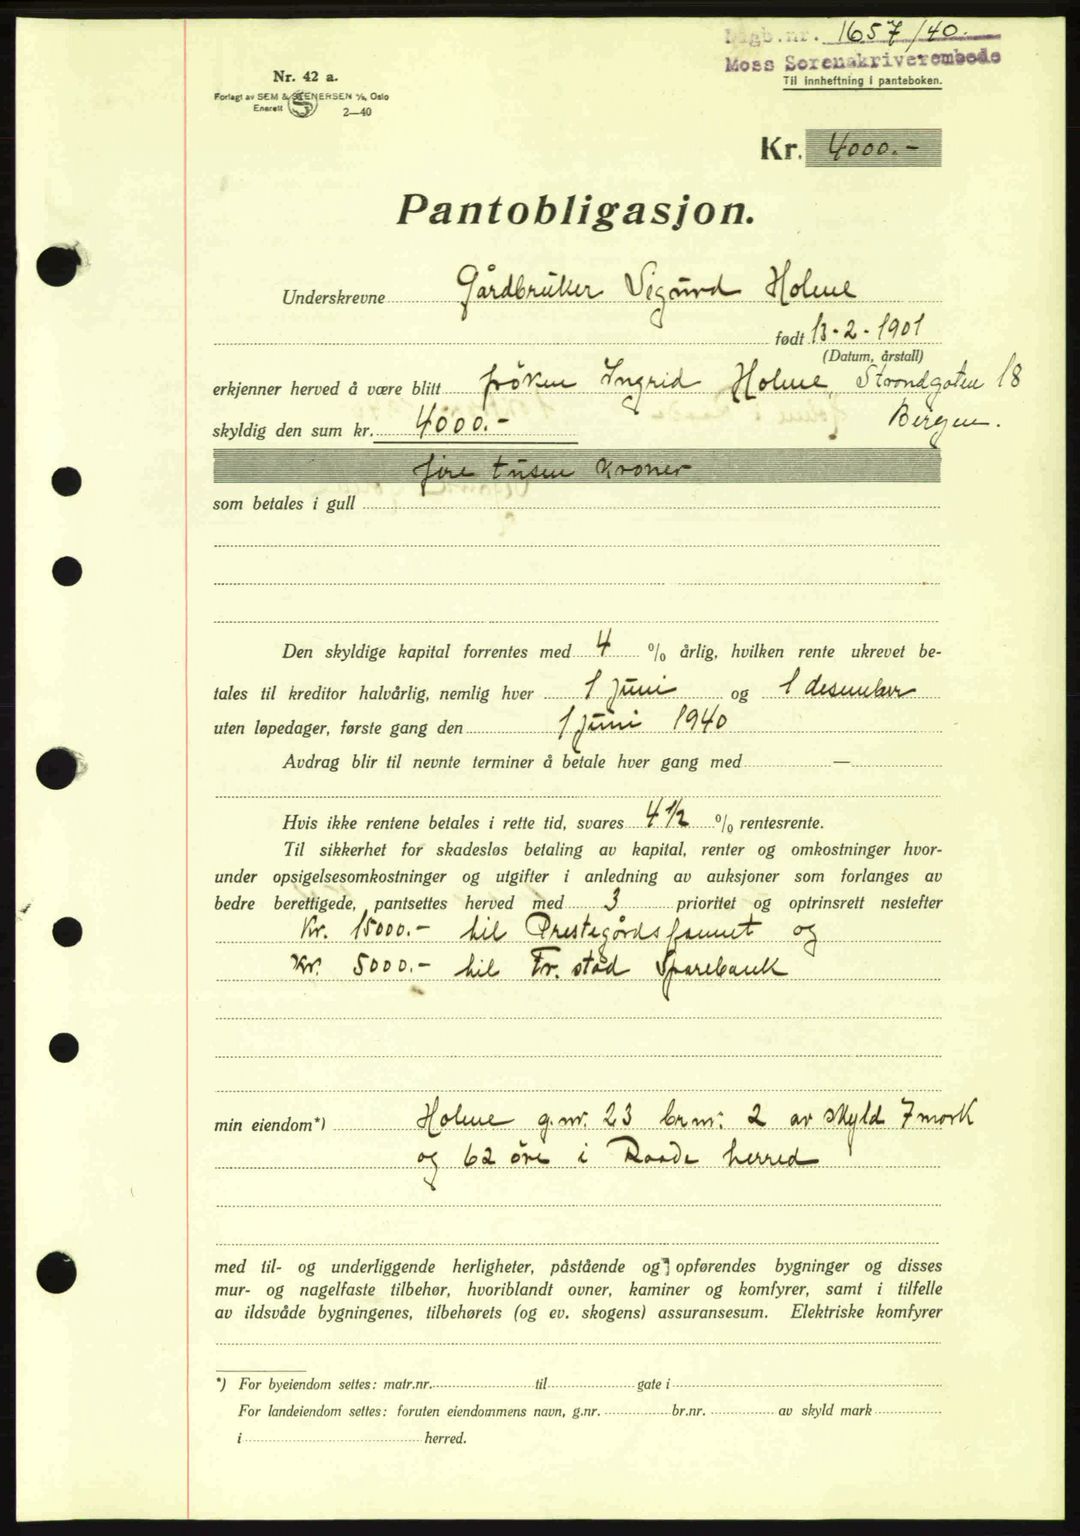 Dagb.nr. 1657/40.
Moss Sorenskriverembede
Til innheftning i panteboken.
Nr. 42 a.
Forlagt av SEM & STENERSEN A/S, Oslo
Enerett 2—40
Kr. 4000.-
Pantobligasjon.
Underskrevne Gårdbruker Sigurd Holme
født 13-2-1901
(Datum, årstall)
erkjenner herved å være blitt frøken Ingrid Holme, Strandgaten 18
skyldig den sum kr. 4000.- Bergen.
fire tusen kroner
som betales i gull
Den skyldige kapital forrentes med 4 % årlig, hvilken rente ukrevet be-
tales til kreditor halvårlig, nemlig hver 1 juni og 1 desember
uten løpedager, første gang den 1 juni 1940
Avdrag blir til nevnte terminer å betale hver gang med —
Hvis ikke rentene betales i rette tid, svares 4 1/2 % rentesrente.
Til sikkerhet for skadesløs betaling av kapital, renter og omkostninger hvor-
under opsigelsesomkostninger og utgifter i anledning av auksjoner som forlanges av
bedre berettigede, pantsettes herved med 3 prioritet og optrinsrett nestefter
Kr. 15000.- til Prestegårdsfonnet og
Kr. 5000.- til Fr.stad Sparebank
min eiendom*) Holme g.nr. 23 br.nr. 2 av skyld 7 mark
og 62 øre i Raade herred
med til- og underliggende herligheter, påstående og opførendes bygninger og disses
mur- og nagelfaste tilbehør, hvoriblandt ovner, kaminer og komfyrer, samt i tilfelle
av ildsvåde bygningenes, tilbehørets (og ev. skogens) assuransesum. Elektriske komfyrer
*) For byeiendom settes: matr.nr. til gate i
For landeiendom settes: foruten eiendommens navn, g.nr. br.nr. av skyld mark
i herred.